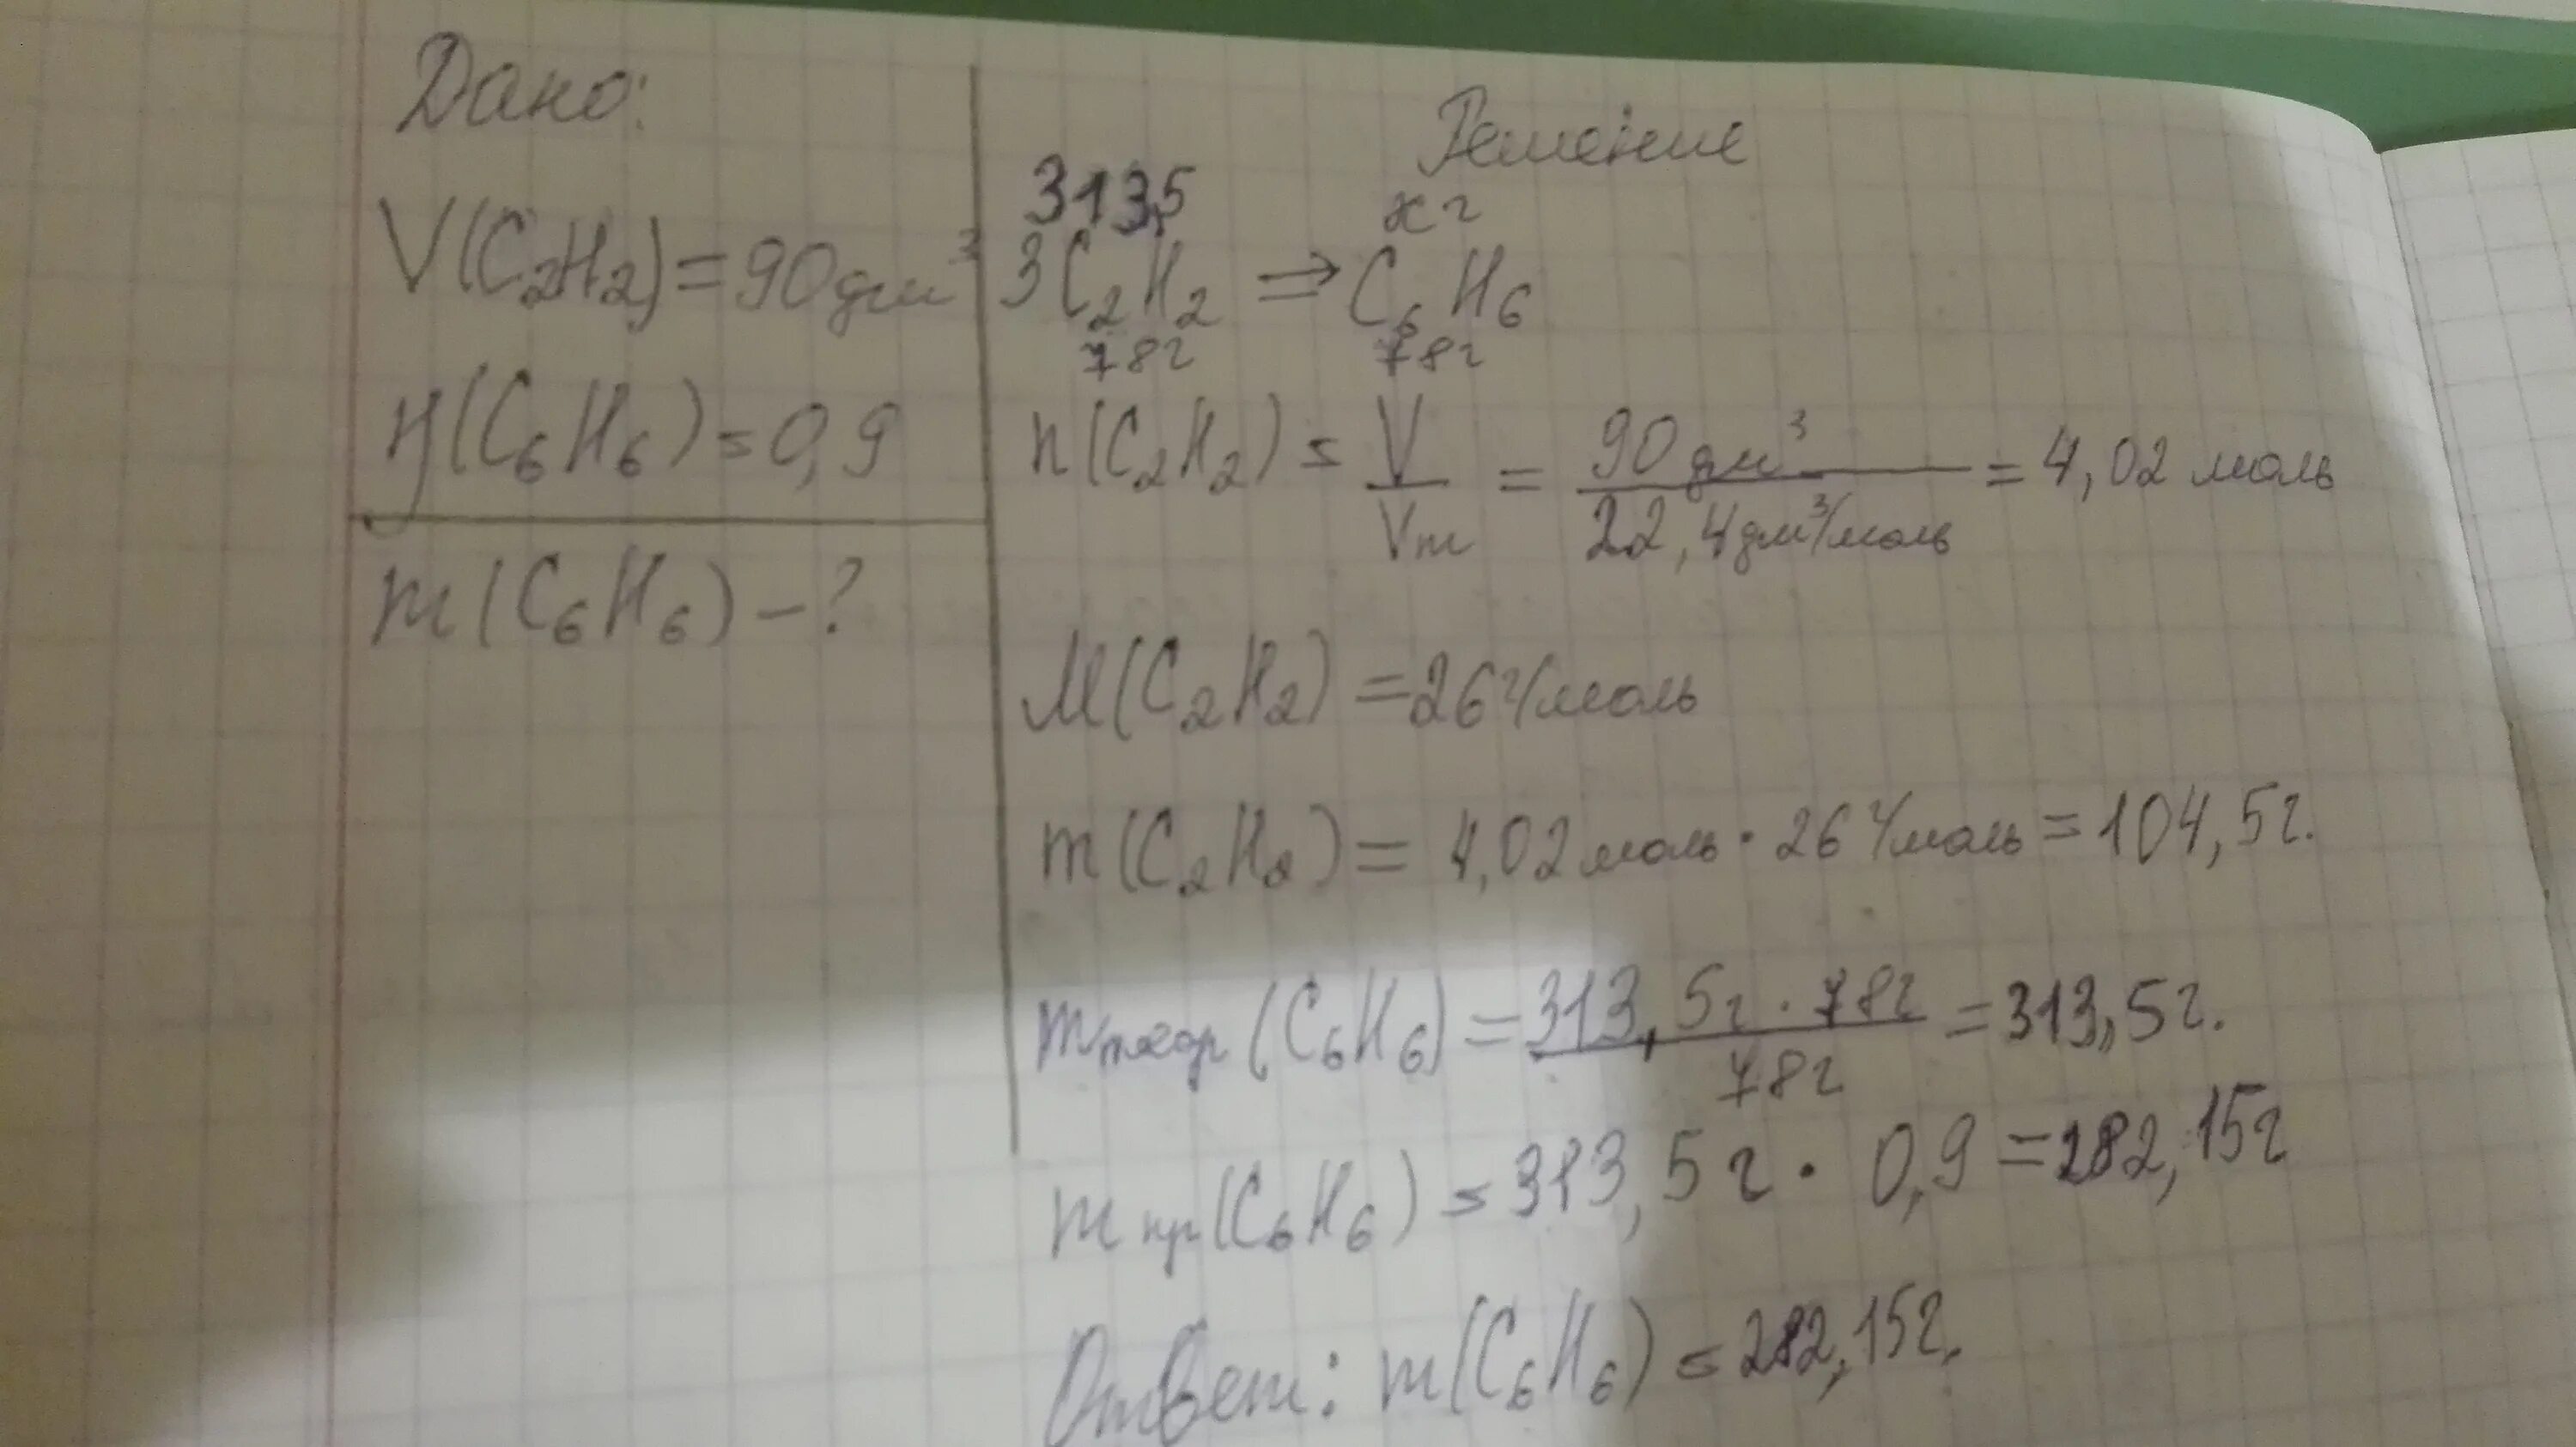 Дано:
V(C₂H₂)=90дм³
η(C₆H₆)=0,9
m(C₆H₆)–?
Решение
313,5 x г
3C₂H₂ ⇒ C₆H₆
78г 78г
n(C₂H₂) = V/Vm = 90дм³/22,4дм³/моль = 4,02 моль
M(C₂H₂) =26г/моль
m(C₂H₂) = 4,02 моль·26г/моль = 104,5г.
mтеор(C₆H₆) = 313,5г·78г/78г = 313,5г.
mпр(C₆H₆) = 313,5г·0,9=282,15г
Ответ: m(C₆H₆) = 282,15г.